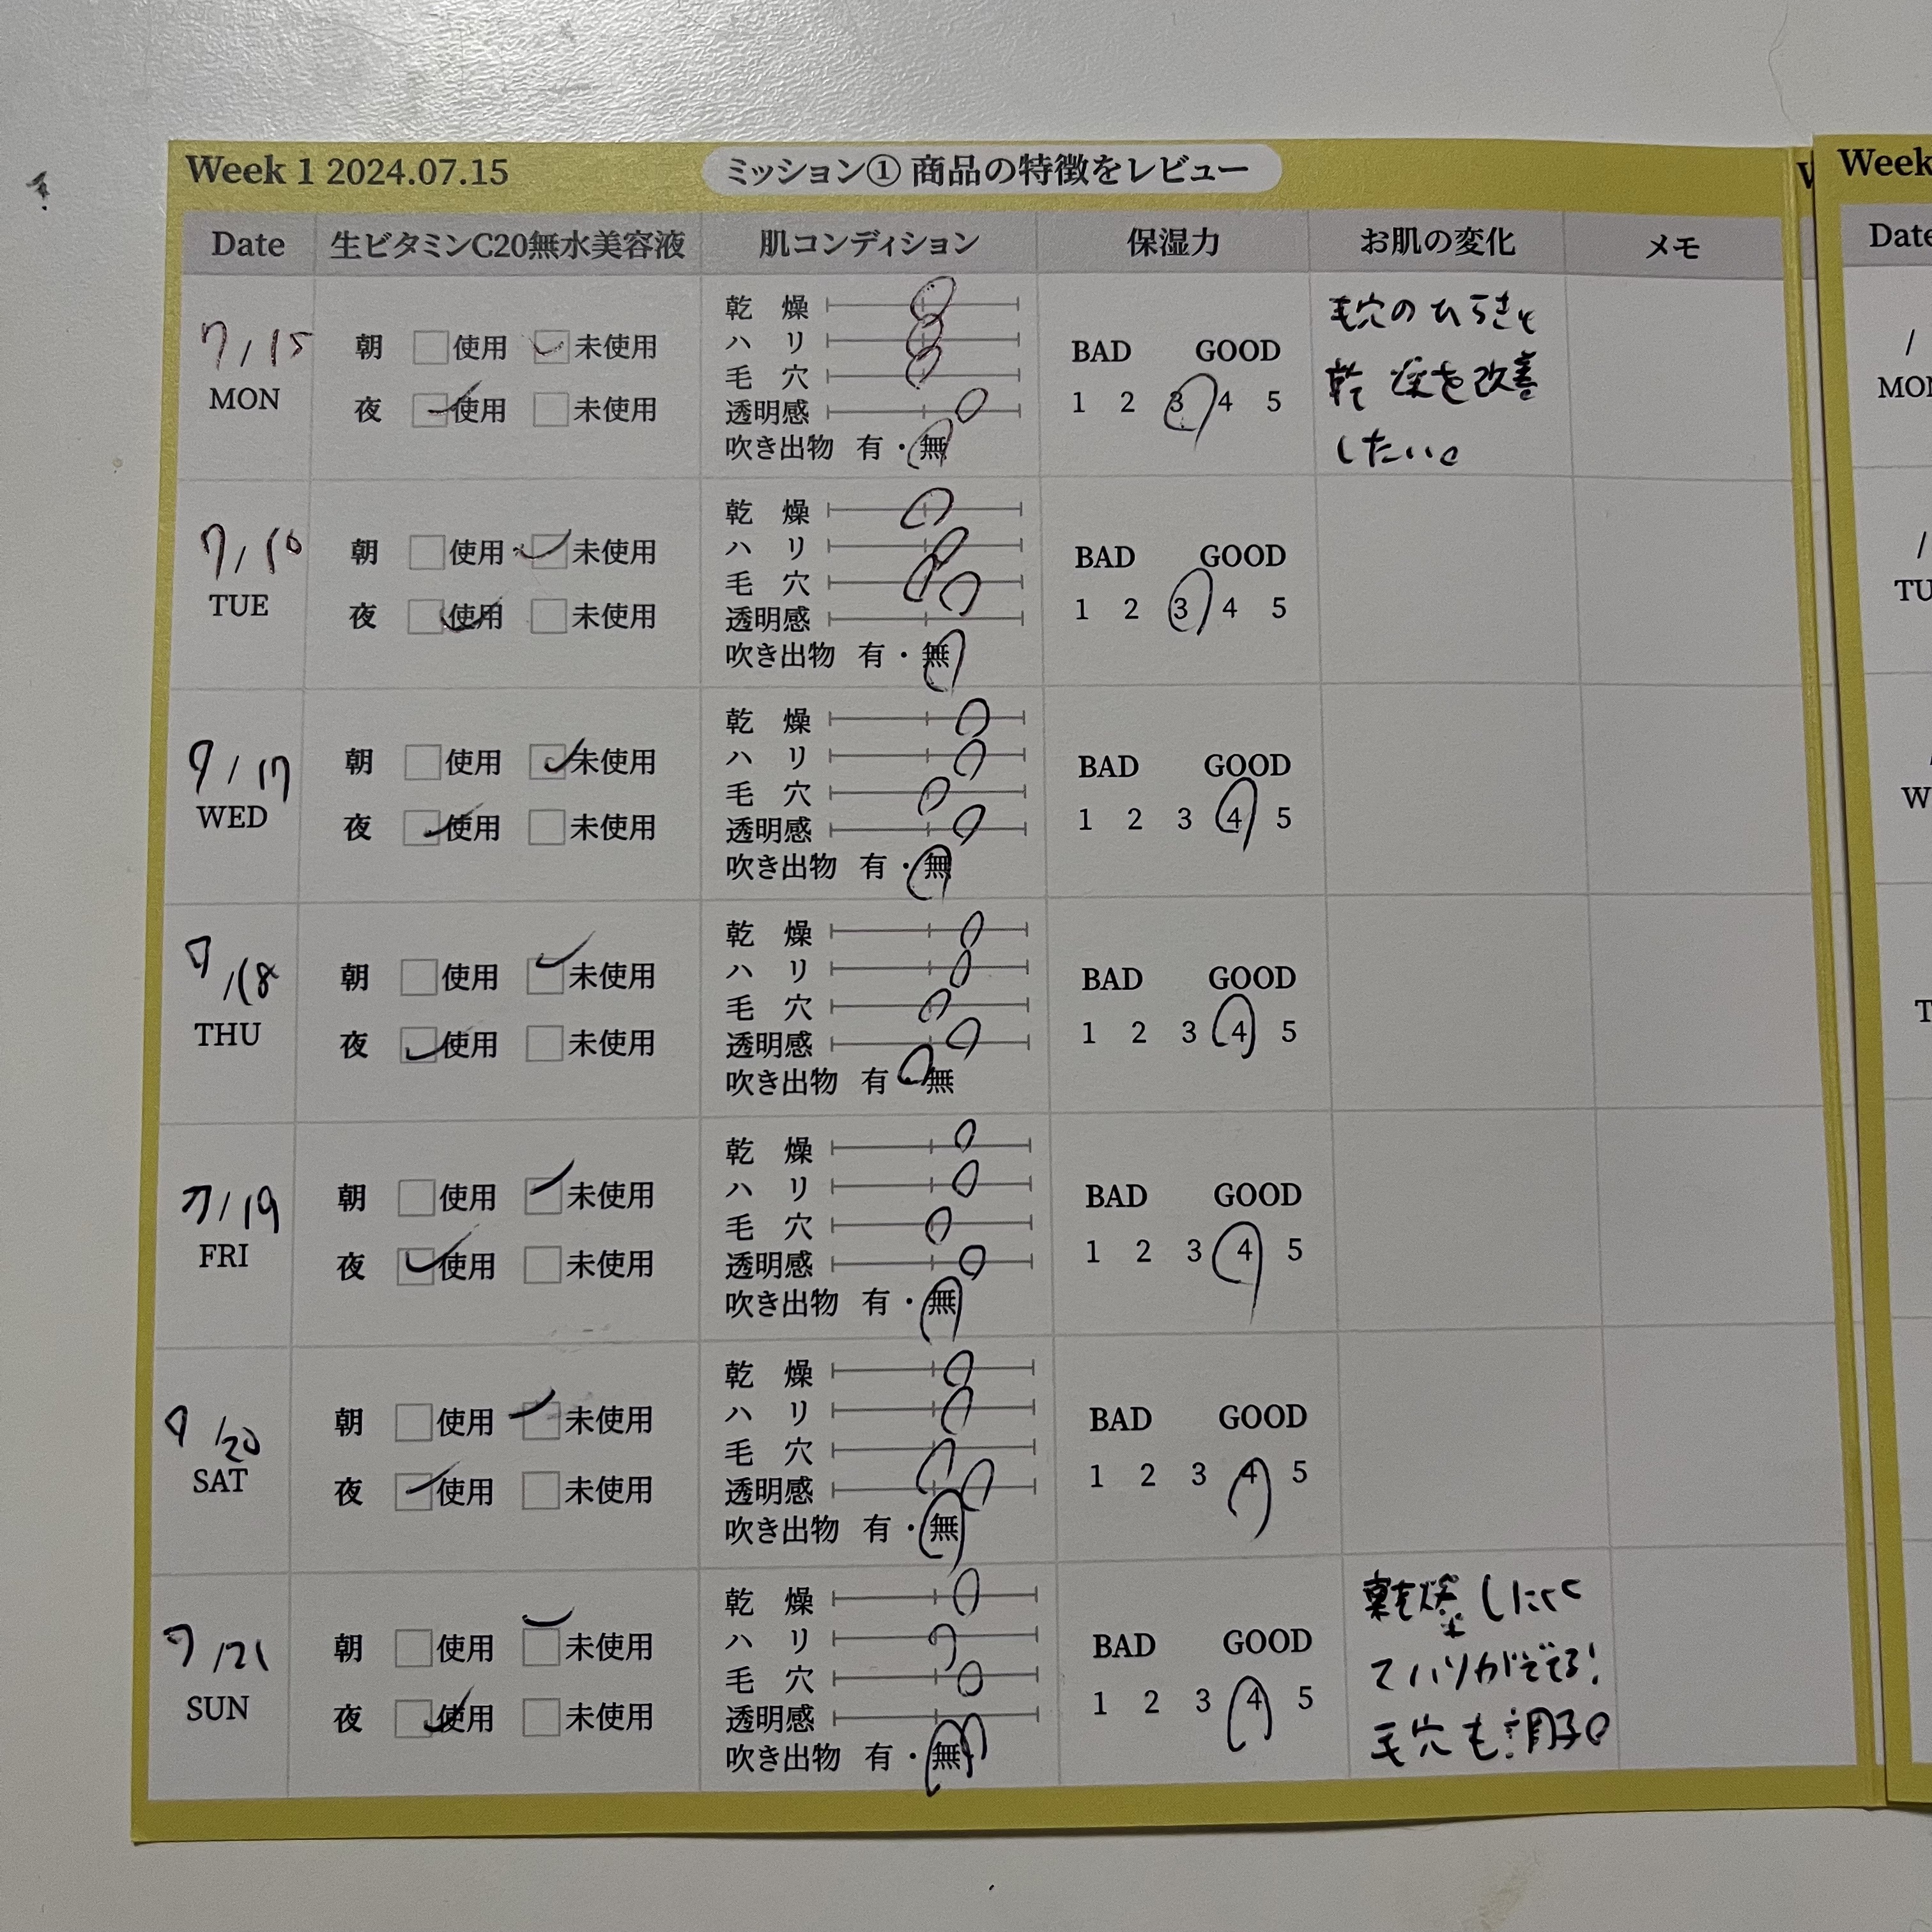 Week 1 2024.07.15 ミッション① 商品の特徴をレビュー
Date 生ビタミンC20無水美容液 肌コンディション 保湿力 お肌の変化 メモ
7/15
MON
朝 使用 未使用
夜 使用 未使用
乾 燥
ハ リ
毛 穴
透明感
吹き出物 有・無
BAD GOOD
1 2 3 4 5
毛穴のひらきと
乾燥を改善
したい。
7/16
TUE
朝 使用 未使用
夜 使用 未使用
乾 燥
ハ リ
毛 穴
透明感
吹き出物 有・無
BAD GOOD
1 2 3 4 5
7/17
WED
朝 使用 未使用
夜 使用 未使用
乾 燥
ハ リ
毛 穴
透明感
吹き出物 有・無
BAD GOOD
1 2 3 4 5
7/18
THU
朝 使用 未使用
夜 使用 未使用
乾 燥
ハ リ
毛 穴
透明感
吹き出物 有 無
BAD GOOD
1 2 3 4 5
7/19
FRI
朝 使用 未使用
夜 使用 未使用
乾 燥
ハ リ
毛 穴
透明感
吹き出物 有・無
BAD GOOD
1 2 3 4 5
7/20
SAT
朝 使用 未使用
夜 使用 未使用
乾 燥
ハ リ
毛 穴
透明感
吹き出物 有・無
BAD GOOD
1 2 3 4 5
7/21
SUN
朝 使用 未使用
夜 使用 未使用
乾 燥
ハ リ
毛 穴
透明感
吹き出物 有・無
BAD GOOD
1 2 3 4 5
乾燥しにくく
てハリがでてる!
毛穴も調子○
Week
Date
/
MON
/